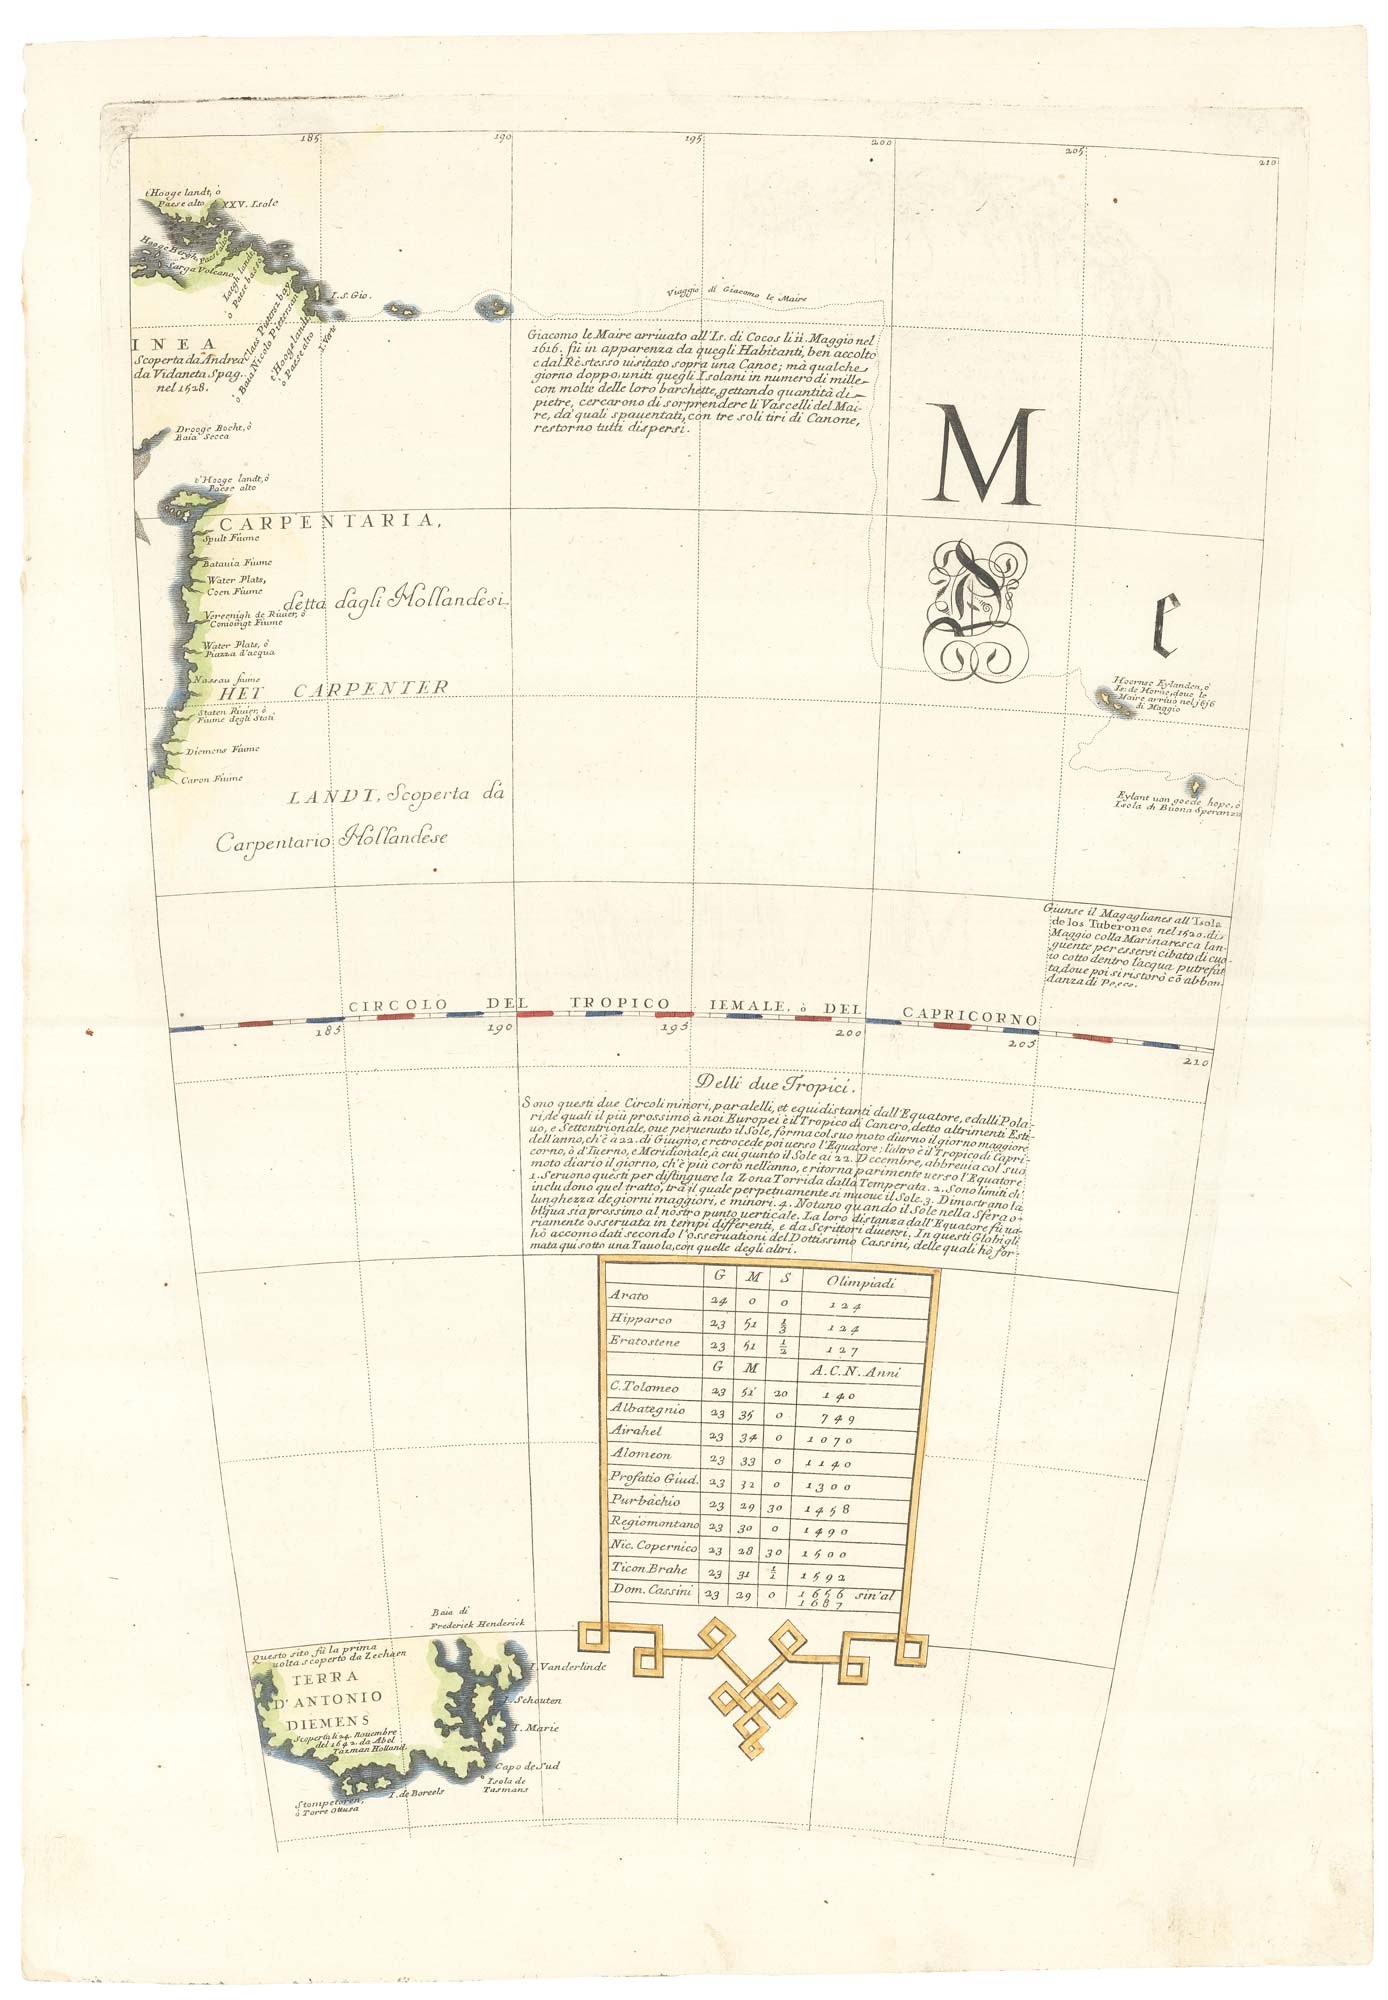 185 190 195 200 205 210
t'Hooge landt, ò
Paese alto
XXV. Isole
Hooge Bergh,
Paese alto
Sarga Volcano
Laegh landt
ò Paese basso
I. s. Gio.
Claes Pietersz bay,
ò Baia Nicolo Pieterson
t'Hooge landt
ò Paese alto
I. Verte
Viaggio di Giacomo le Maire
INEA
Scoperta da Andrea
da Vidaneta Spag.
nel 1528.
Giacomo le Maire arriuato all'Is. di Cocos li ii. Maggio nel
1616. fù in apparenza da quegli Habitanti, ben accolto
e dal Rè stesso uisitato sopra una Canoe; mà qualche
giorno doppo, uniti quegli Isolani in numerò di mille
con molte delle loro barchette, gettando quantità di
pietre, cercarono di sorprendere li Vascelli del Mai-
re, dà quali spauentati, con tre soli tiri di Canone,
restorno tutti dispersi.
M
Drooge Bocht, ò
Baia Secca
t'Hooge landt, ò
Paese alto
CARPENTARIA,
Spult Fiume
Batauia Fiume
Water Plats,
Coen Fiume
detta dagli Hollandesi.
Vereenigh de Riuier, ò
Conioingt Fiume
Water Plats, ò
Piazza d'acqua
Nassau fiume
HET CARPENTER
Staten Riuier, ò
Fiume degli Stati
Diemens Fiume
Caron Fiume
LANDT, Scoperta dà
Carpentario Hollandese
e
Hoernse Eylanden, ò
Is: de Horne, doue le
Maire arriuò nel 1616
di Maggio
Eylant uan goede hope, ò
Isola di Buona Speranza
Giunse il Magaglianes all'Isola
de los Tuberones nel 1520. di
Maggio colla Marinaresca lan-
guente per essersi cibato di cuo-
io cotto dentro l'acqua putrefat
ta, doue poi si ristorò cō abbon-
danza di Pesce.
CIRCOLO DEL TROPICO IEMALE, ò DEL CAPRICORNO
185 190 195 200 205 210
Delli due Tropici.
Sono questi due Circoli minori, paralelli, et equidistanti dall'Equatore, e dalli Pola-
ri, de quali il più prossimo à noi Europei è il Tropico di Cancro, detto altrimenti Esti-
uo, e Settentrionale, oue peruenuto il Sole, forma col suo moto diurno il giorno maggiore
dell'anno, ch'è à 22. di Giugno, e retrocede poi uerso l'Equatore: l'altro è il Tropico di Capri-
corno, ò d'Iuerno, e Meridionale, à cui giunto il Sole ai 22. Decembre, abbreuia col suo
moto diario il giorno, ch'è più corto nell'anno, e ritorna parimente uerso l'Equatore
1. Seruono questi per distinguere la Zona Torrida dalla Temperata. 2. Sono limiti ch'
includono quel tratto, trà il quale perpetuamente si muoue il Sole. 3. Dimostrano la
lunghezza de giorni maggiori, e minori. 4. Notano quando il Sole nella Sfera o-
bliqua sia prossimo al nostro punto uerticale. La loro distanza dall'Equatore fù ua-
riamente osseruata in tempi differenti, e da Scrittori diuersi. In questi Globi gli
hò accomodati secondo l'osseruationi del Dottissimo Cassini, delle quali hò for-
mata quì sotto una Tauola, con quelle degli altri.
G M S Olimpiadi
Arato 24 0 0 124
Hipparco 23 51 1/3 124
Eratostene 23 51 1/2 127
G M A.C.N. Anni
C. Tolomeo 23 51 20 140
Albategnio 23 35 0 749
Airahel 23 34 0 1070
Alomeon 23 33 0 1140
Profatio Giud. 23 32 0 1300
Purbàchio 23 29 30 1458
Regiomontano 23 30 0 1490
Nic. Copernico 23 28 30 1500
Ticon Brahe 23 31 1/2 1592
Dom. Cassini 23 29 0 1656 sin'al
1687
Baia di
Frederick Henderick
Questo sito fù la prima
uolta scoperto da Zechaen
TERRA
D'ANTONIO
DIEMENS
Scoperta li 24. Nouembre
del 1642. da Abel
Tazman Holland.
I. Vanderlinde
I. Schouten
I. Marie
Capo de Sud
Isola de
Tasmans
I. de Boreels
Stompetoren,
ò Torre Ottusa